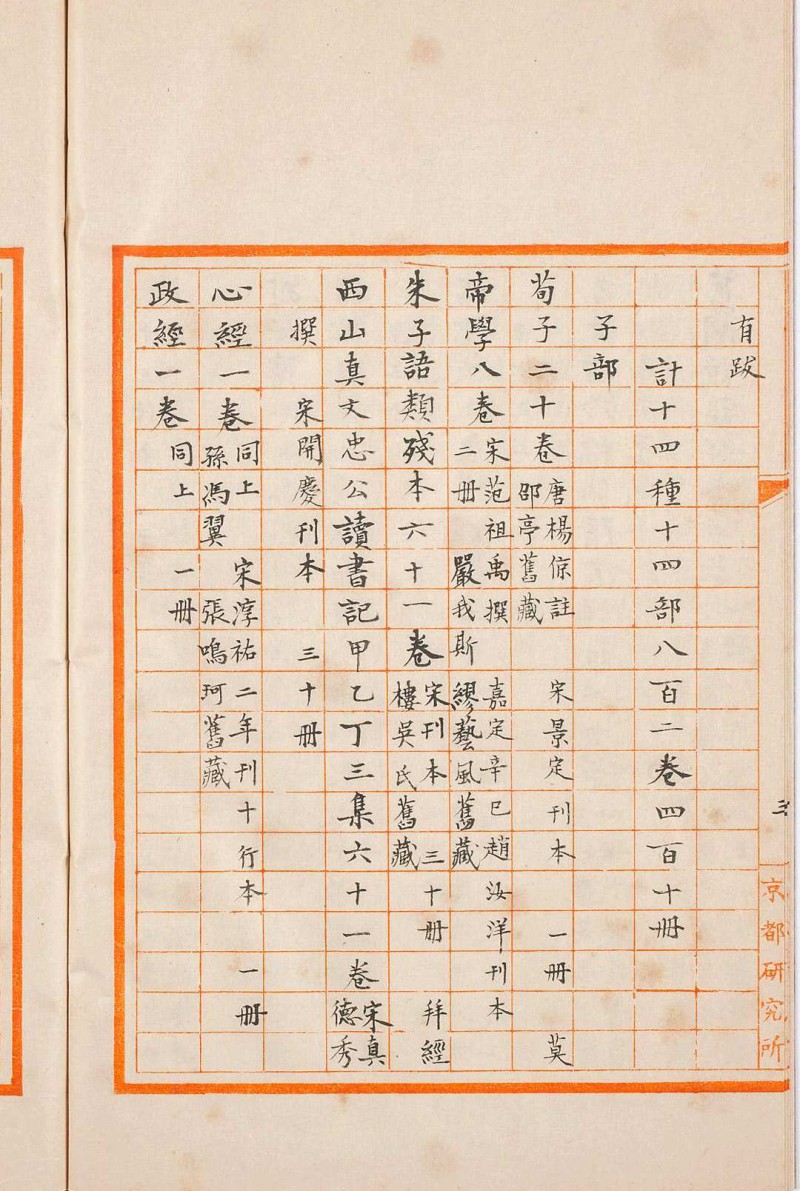 有跋
計十四種十四部八百二卷四百十冊
子部
荀子二十卷 唐楊倞註 宋景定刊本 一冊 莫
邵亭舊藏
帝學八卷 宋范祖禹撰 嘉定辛巳趙汝洋刊本
二冊 嚴我斯 繆藝風舊藏
朱子語類殘本六十一卷 宋刊本 三十冊 拜經
樓吳氏舊藏
西山真文忠公讀書記甲乙丁三集六十一卷 宋真
德秀
撰 宋開慶刊本 三十冊
心經一卷 同上 宋淳祐二年刊十行本 一冊
孫馮翼 張鳴珂舊藏
政經一卷 同上 一冊
京都研究所